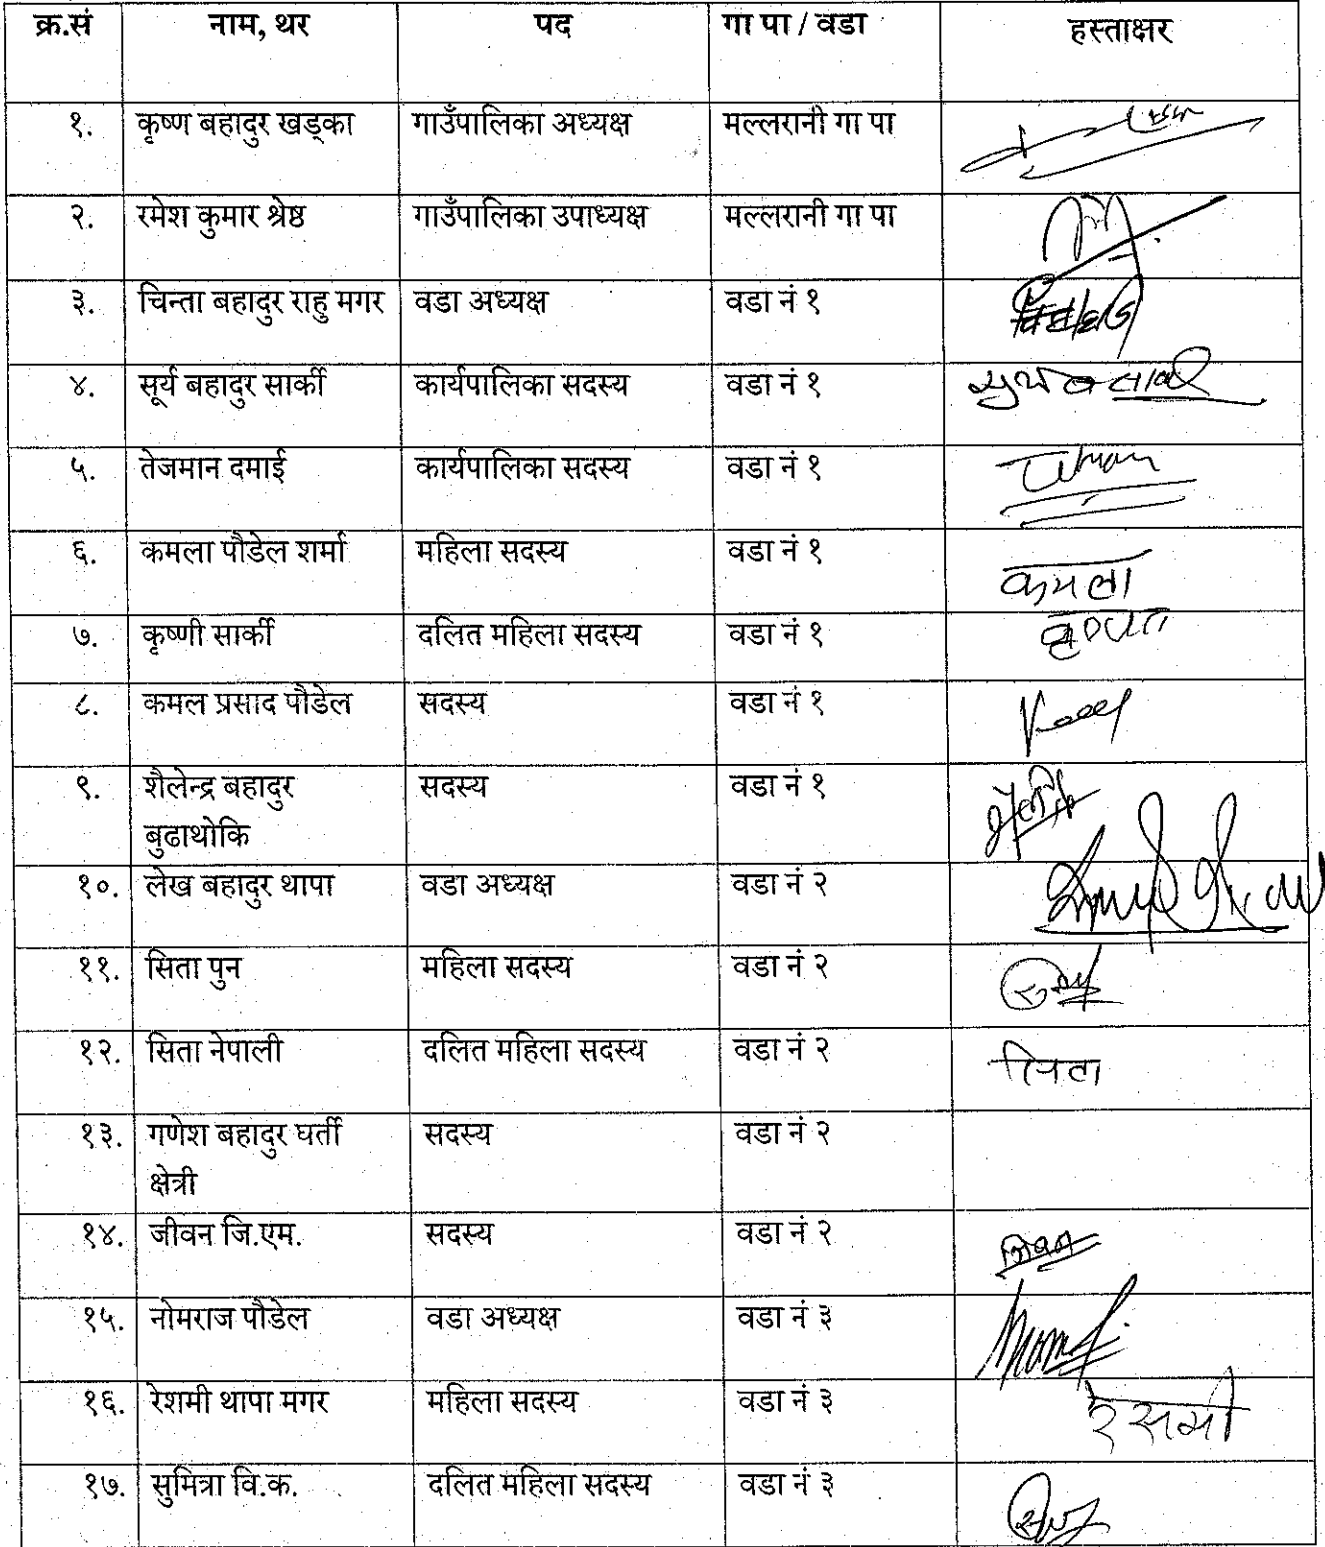 क्र.सं नाम, थर पद गा पा / वडा हस्ताक्षर
१. कृष्ण बहादुर खड्का गाउँपालिका अध्यक्ष मल्लरानी गा पा
२. रमेश कुमार श्रेष्ठ गाउँपालिका उपाध्यक्ष मल्लरानी गा पा
३. चिन्ता बहादुर राहु मगर वडा अध्यक्ष वडा नं १
४. सूर्य बहादुर सार्की कार्यपालिका सदस्य वडा नं १
५. तेजमान दमाई कार्यपालिका सदस्य वडा नं १
६. कमला पौडेल शर्मा महिला सदस्य वडा नं १ कमला
७. कृष्णी सार्की दलित महिला सदस्य वडा नं १
८. कमल प्रसाद पौडेल सदस्य वडा नं १
९. शैलेन्द्र बहादुर सदस्य वडा नं १
बुढाथोकि
१०. लेख बहादुर थापा वडा अध्यक्ष वडा नं २
११. सिता पुन महिला सदस्य वडा नं २
१२. सिता नेपाली दलित महिला सदस्य वडा नं २ सिता
१३. गणेश बहादुर घर्ती सदस्य वडा नं २
क्षेत्री
१४. जीवन जि.एम. सदस्य वडा नं २ जिवन
१५. नोमराज पौडेल वडा अध्यक्ष वडा नं ३
१६. रेशमी थापा मगर महिला सदस्य वडा नं ३ रेसमी
१७. सुमित्रा वि.क. दलित महिला सदस्य वडा नं ३